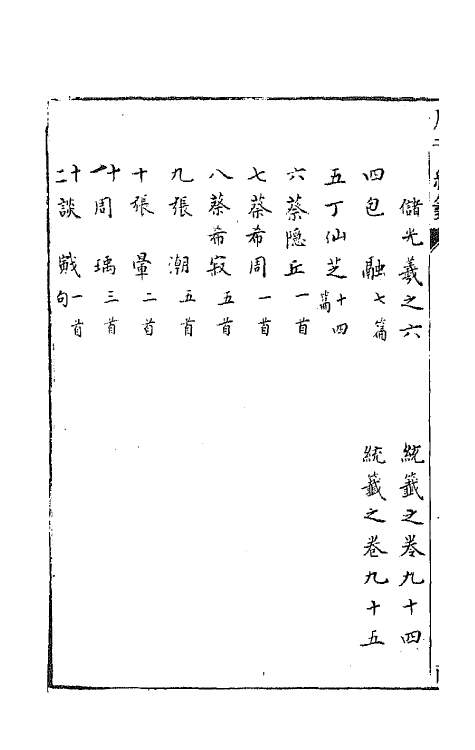 儲光羲之六　統籤之卷九十四
四包　融七篇　統籤之卷九十五
五丁仙芝十四篇
六蔡隱丘一首
七蔡希周一首
八蔡希寂五首
九張　潮五首
十張　暈二首
十一周　瑀三首
十二談　戭一首一句